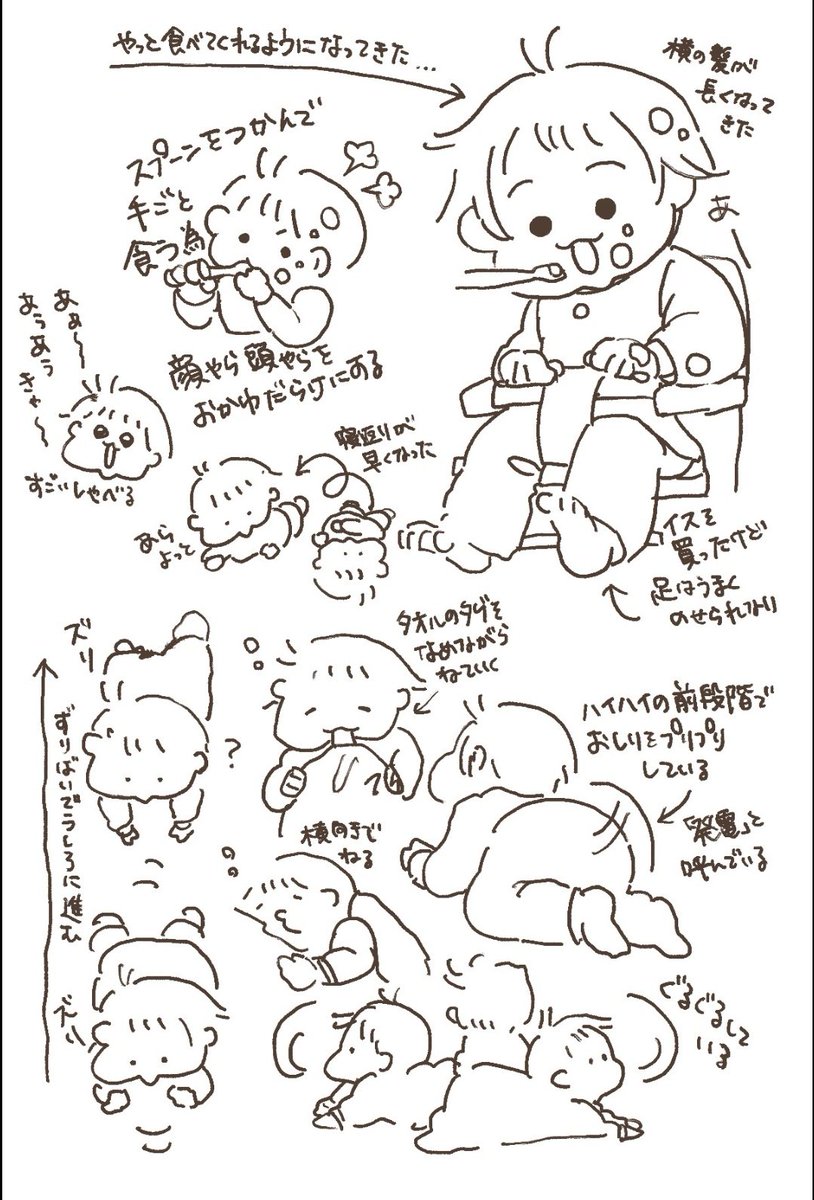 やっと食べてくれるようになってきた…
横の髪が
長くなって
きた
スプーンをつかんで
手ごと
食う為
顔やら頭やらを
おかゆだらけにする
あ
あぁ〜
あうあう
きゃ〜
すごいしゃべる
寝返りが
早くなった
あら
よっと
イスを
買ったけど
足はうまく
のせられない
ズリ
ずりばいでうしろに進む
ズリ
?
タオルのタグを
なめながら
ねていく
横向きで
ねる
ハイハイの前段階で
おしりをプリプリ
している
「発電」と
呼んでいる
ぐるぐるして
いる